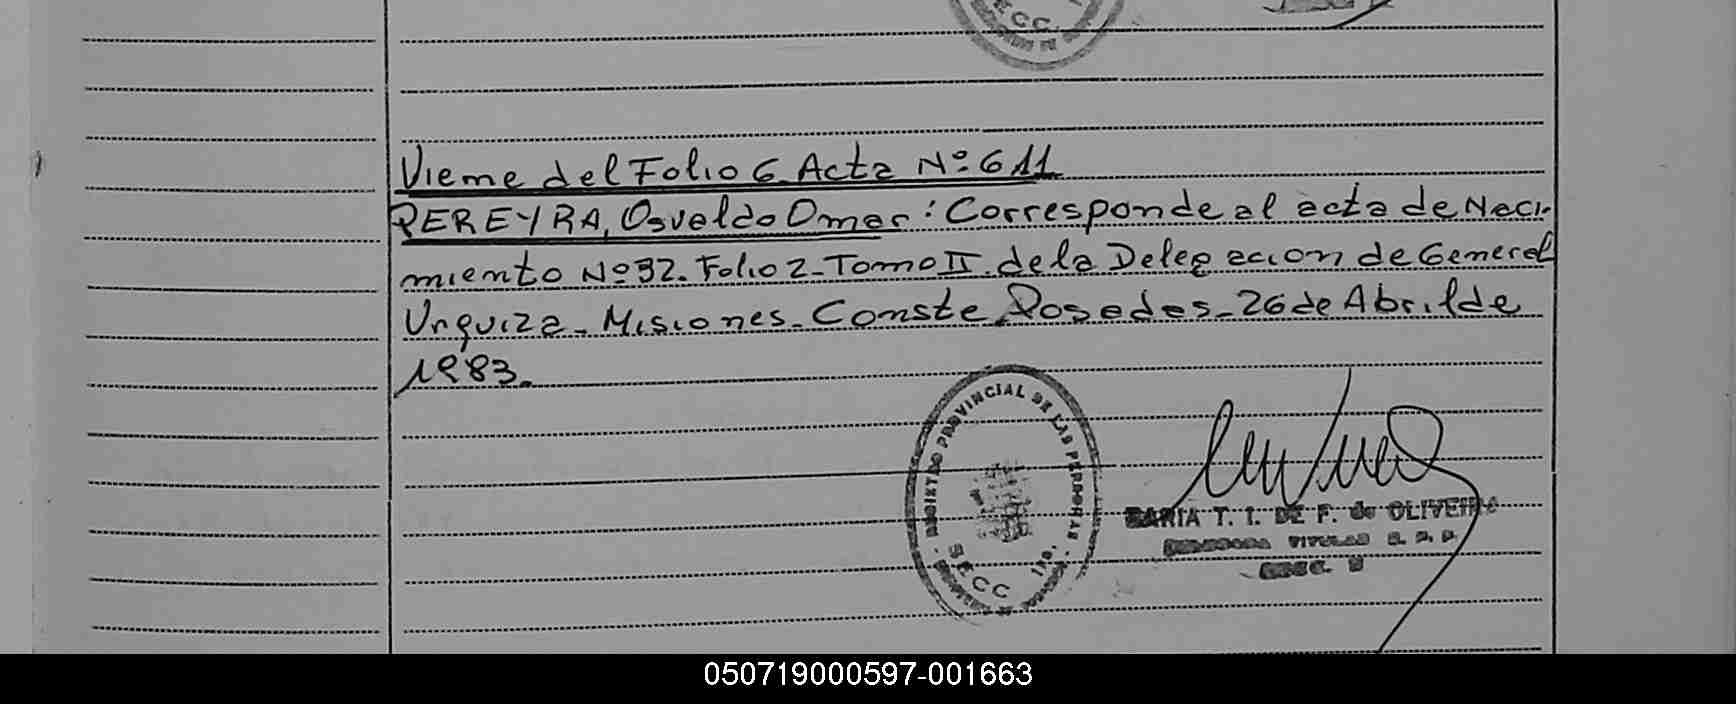 SECC.
Viene del Folio 6 Acta Nº 611
PEREYRA, Osvaldo Omar: Corresponde al acta de Naci-
miento Nº 32. Folio 2 - Tomo II. de la Delegacion de General
Urquiza - Misiones. Conste Posadas - 26 de Abril de
1983.
REGISTRO PROVINCIAL DE LAS PERSONAS
SECC
MARIA T. I. DE F. de OLIVEIRA
TITULAR R. P. P.
SECC.
050719000597-001663